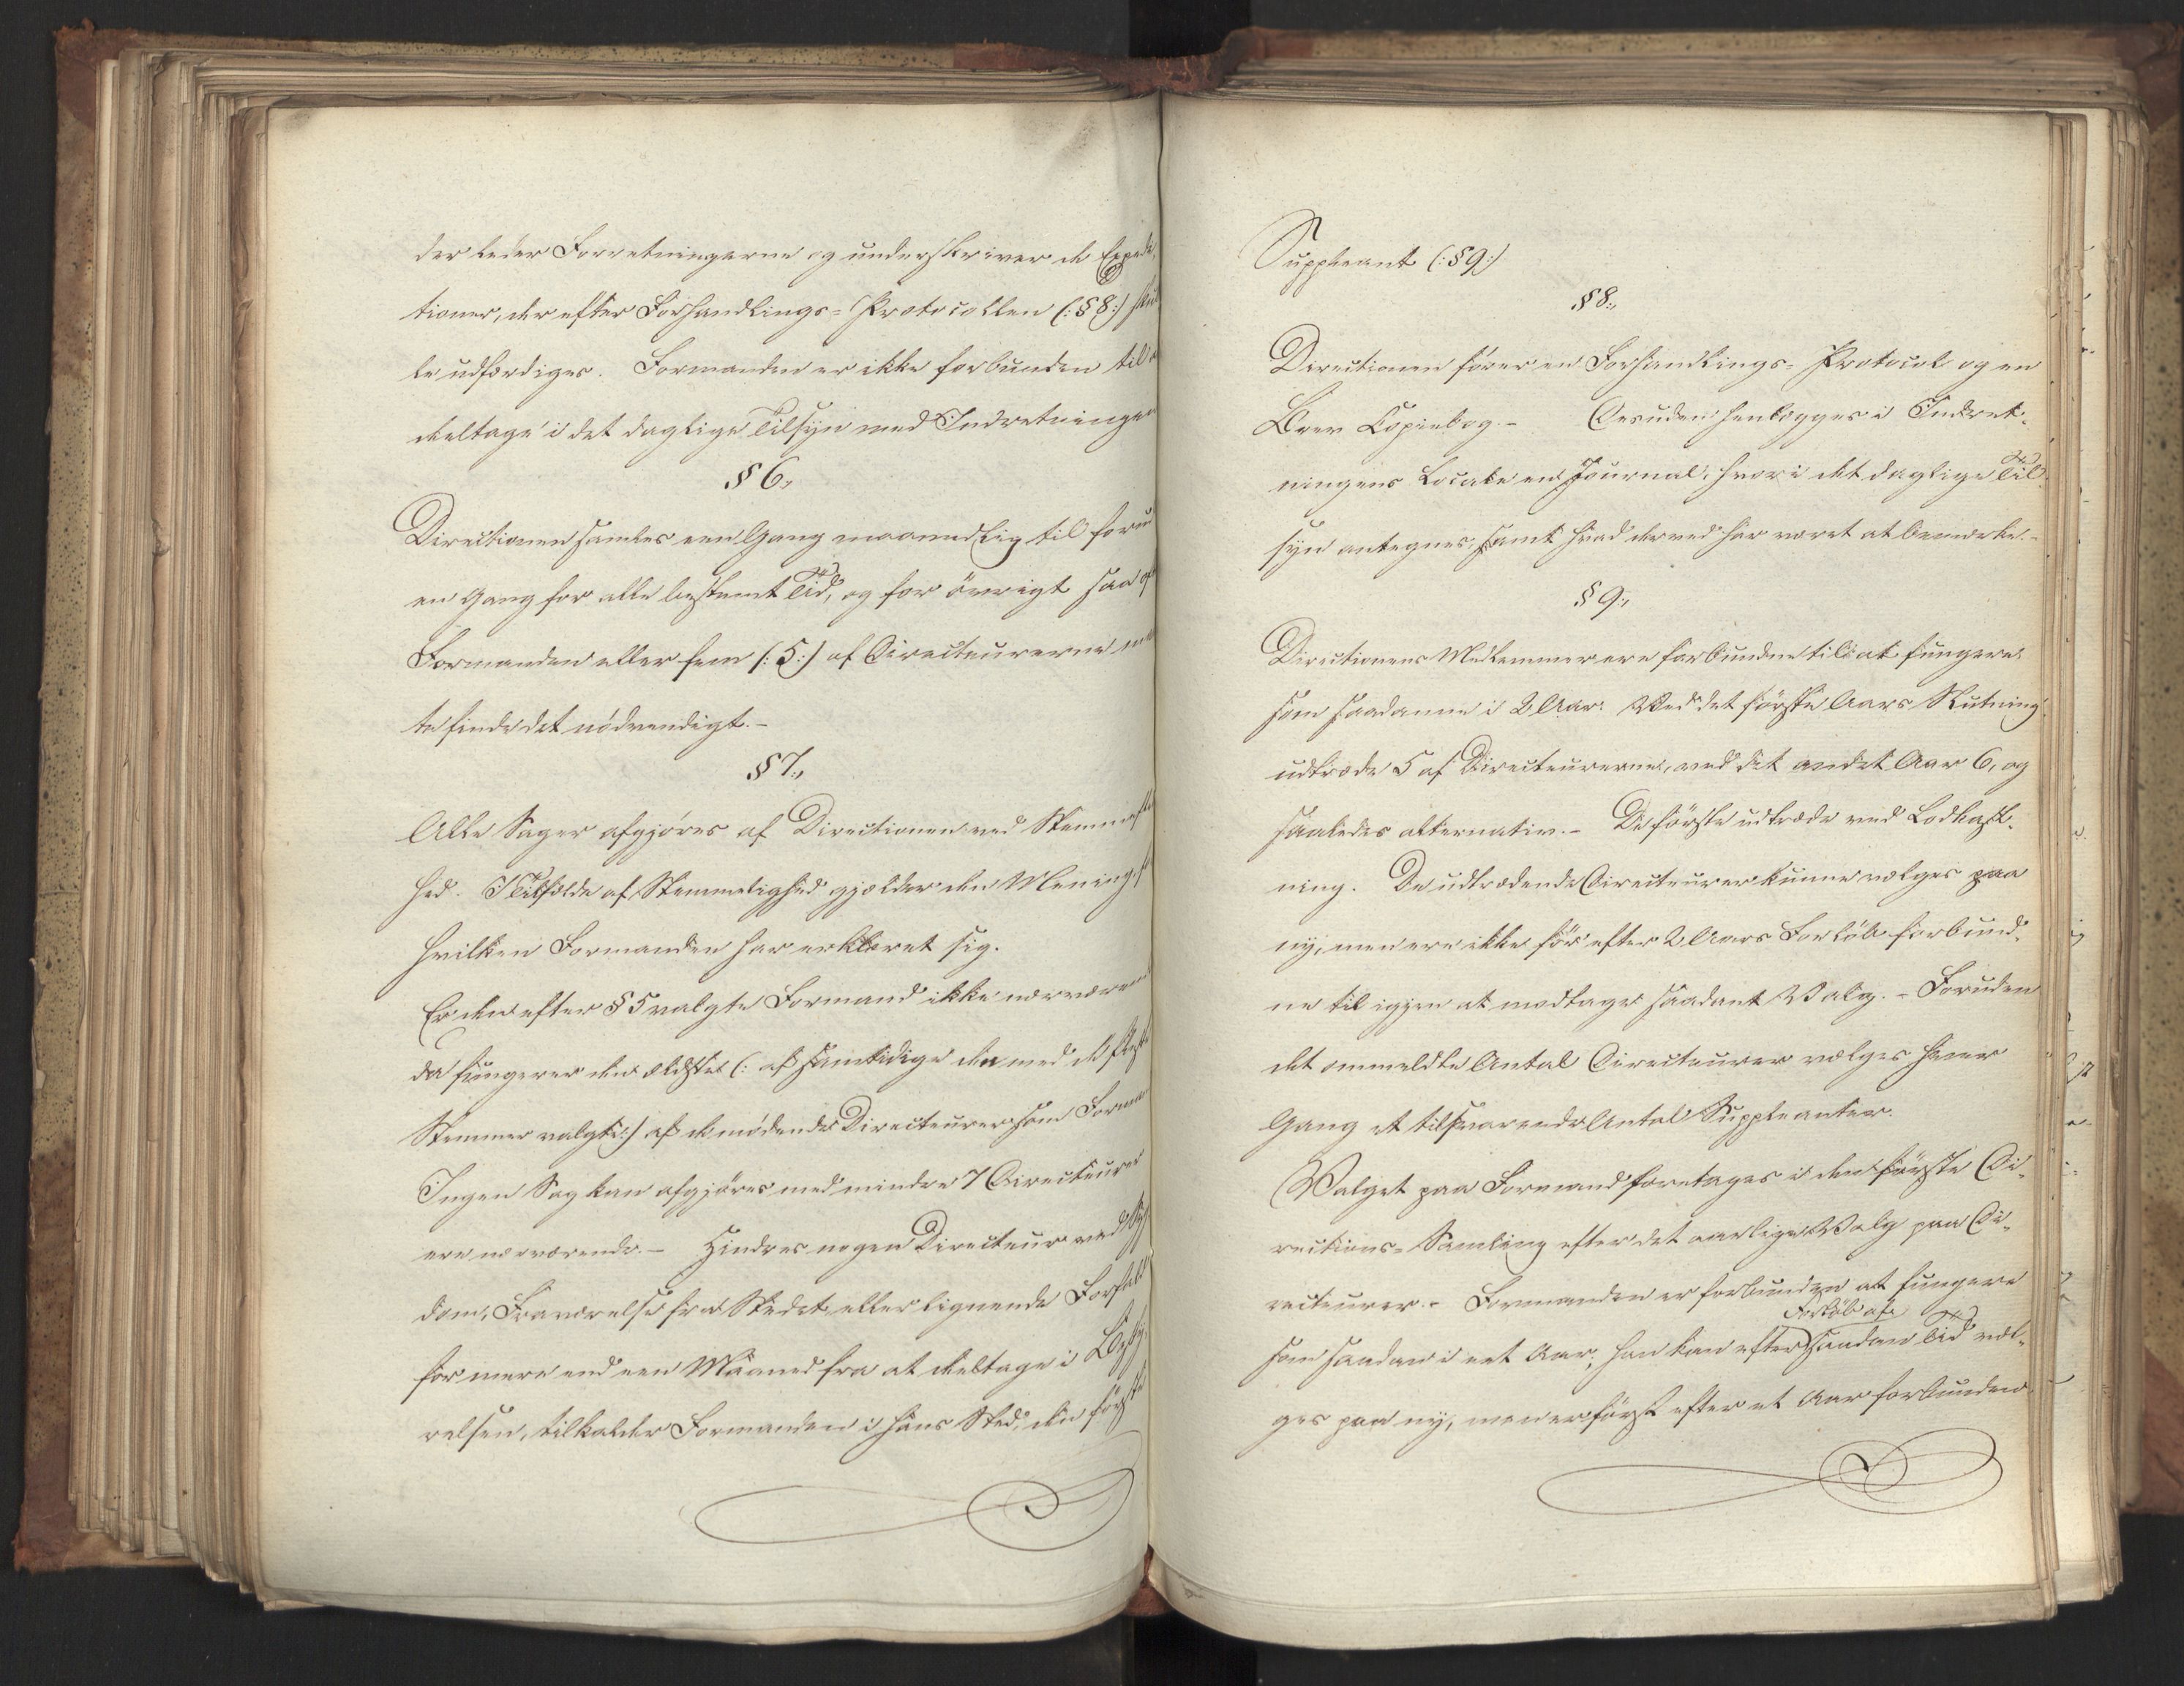 der leder Forretningerne og underskriver de Expedi¬
tioner, der efter Forhandlings-Protocollen (:§8:) skul
le udfærdiges. Formanden er ikke forbunden til a
deeltage i det daglige Tilsyn med Indretningen
§ 6.,
Directionen samles een Gang maanedlig til forud
en Gang for alle bestemt Tid, og for övrigt saa of
Formanden eller fem (:5:) af Directeurerne
te finde det nödvendigt.-
§ 7.,
Alle Sager afgjöres af Directionen ved Stemmefle
hed. I Tilfælde af Stemmelighed gjælder den Mening f
hvilken Formanden har erklæret sig.
Er den efter § 5 valgte Formand ikke nærværen
da fungerer den ældste (: af samtidige den med de fleste
Stemmer valgte:) af de mödende Directeurer som Forma
Ingen Sag kan afgjöres med mindre 7 Directeurer
ere nærværende.- Hindres nogen Directeur ved Syg
dom, Fraværelse fra Stedet eller lignende Forfald
for mere end een Maaned fra at deeltage i Besty
relsen, tilkalder Formanden i hans Sted, den förste
Suppleant (:§9:)
§ 8.,
Directionen förer en Forhandlings-Protocol og en
Brev Copiebog.- Desuden henlægges i Indret¬
ningens Locale en Journal, hvori det daglige Til¬
syn antegnes, samt hvad derved har været at bemærke.-
§ 9.,
Directionens Medlemmer ere forbundne til at fungere
som saadanne i 2 Aar. Ved det förste Aars Slutning
udtræde 5 af Directeurerne, ved det andet Aar 6, og
saaledes alternativ.- De förste udtræde ved Lodkast¬
ning. De udtrædende Directeurer kunne vælges paa
ny, men ere ikke för efter 2 Aars Forlöb forbund¬
ne til igjen at modtage saadant Valg.- Foruden
det ommeldte Antal Directeurer vælges hver
Gang et tilsvarende Antal Suppleanter.
Valget paa Formand foretages i den förste Di¬
rections-Samling efter det aarlige Valg paa Di¬
recteurer.- Formanden er forbunden at fungere
Forlöb af
som saadan i eet Aar; han kan efter saadan Tid væl¬
ges paa ny, men er först efter et Aar forbunden